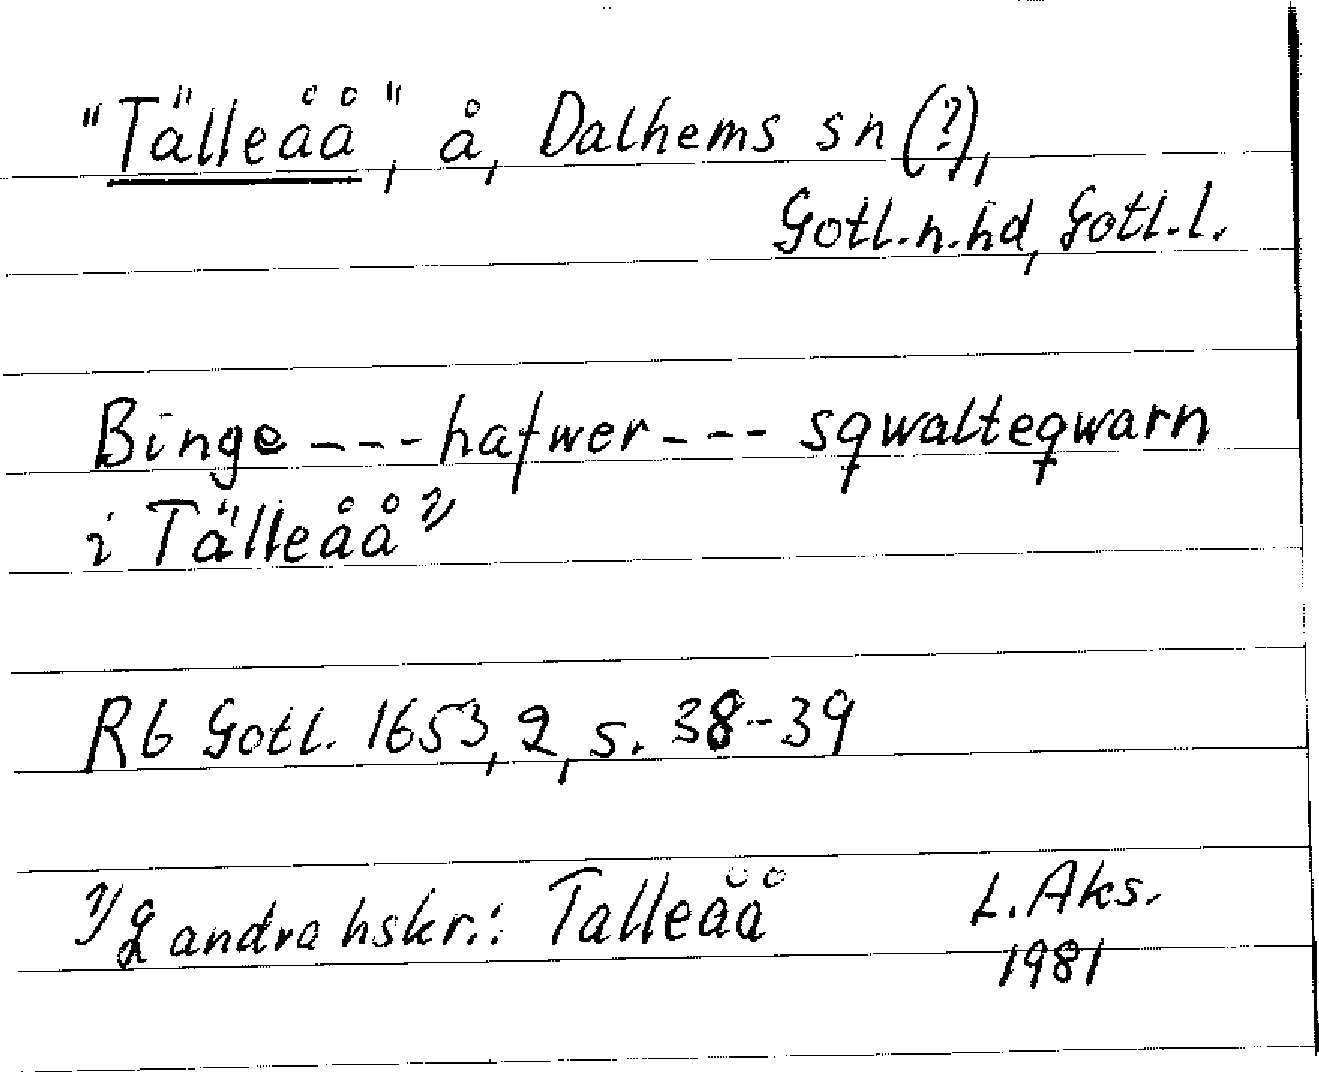 "Tälleåå", å, Dalhems sn (?),
Gotl.n.hd, Gotl.l.
Binge --- hafwer --- sqwalteqwarn
i Tälleåå 1)
Rb Gotl. 1653,2, s. 38-39
1) 2 andra hskr.: Talleåå
L. Aks.
1981